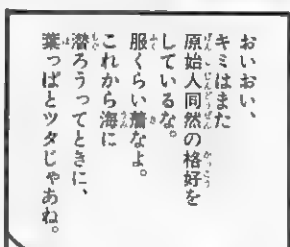 おいおい、
キミはまた
原始人同然の格好を
しているな。
服くらい着なよ。
これから海に
潜ろうってときに、
葉っぱとツタじゃあね。